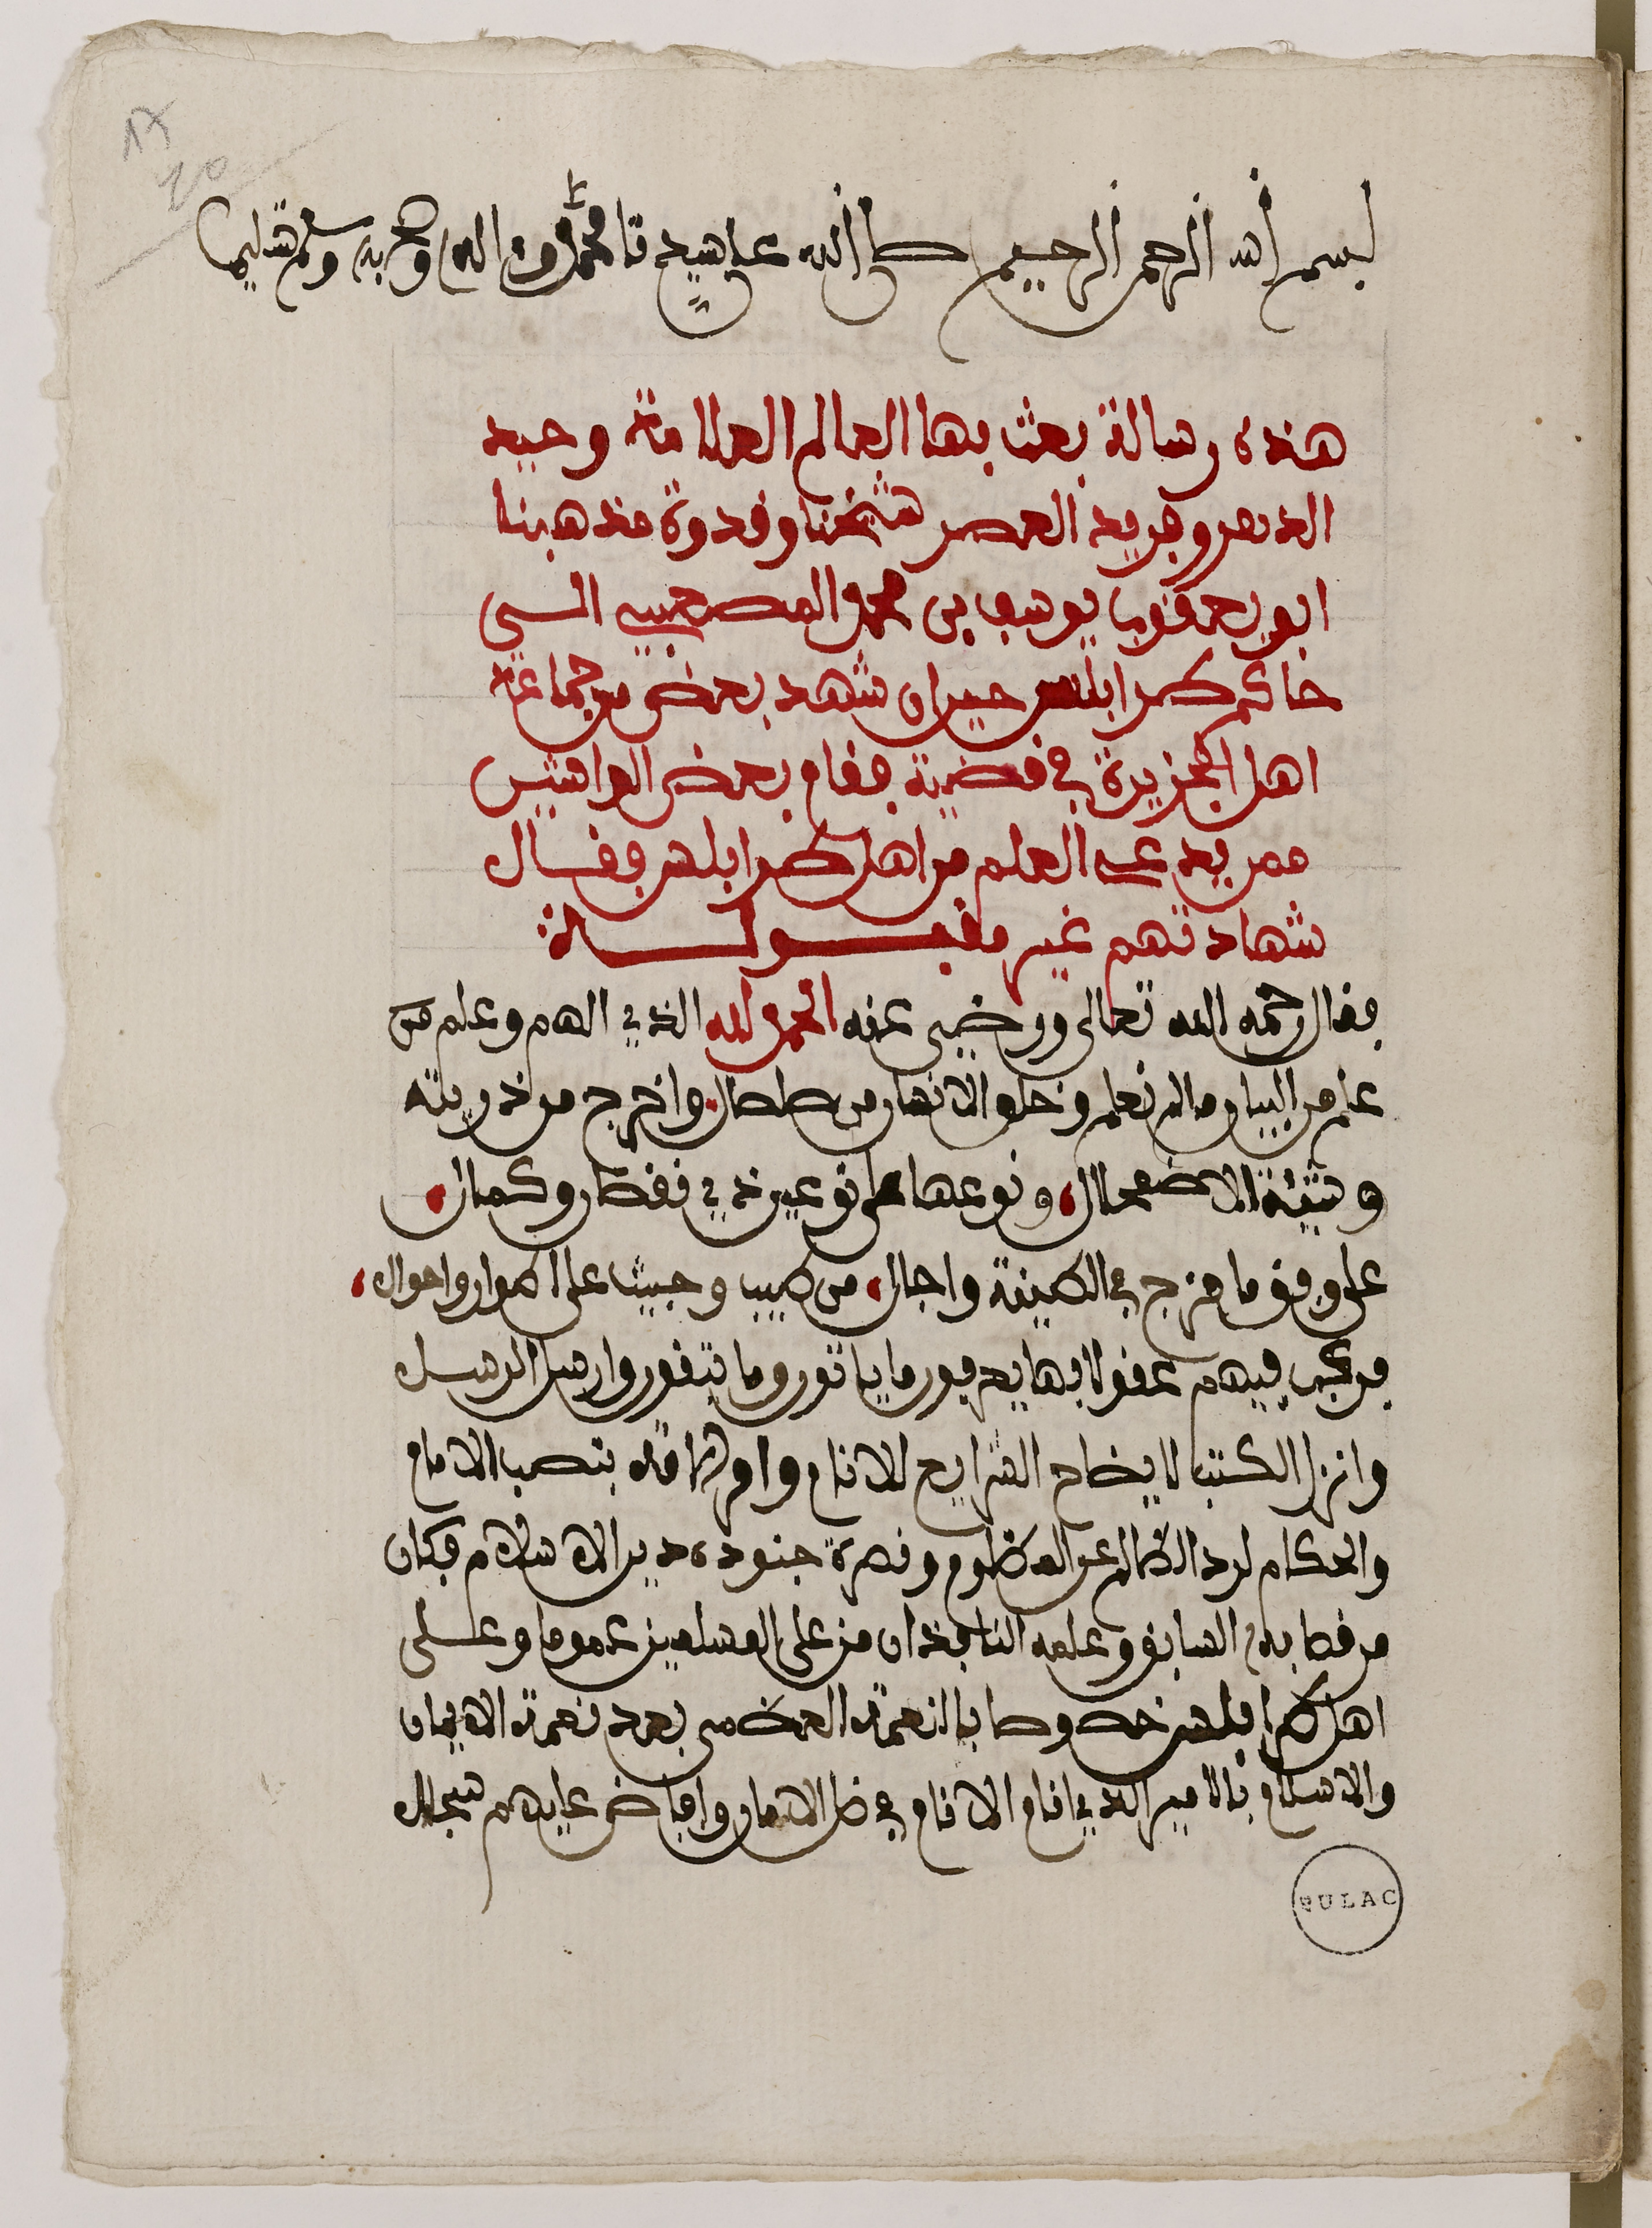 بسم الله الرحمن الرحيم صلى الله على سيدنا محمد وءاله وصحبه وسلم تسليما
هذه رسالة بعث بها العالم العلامة وحيد
الدهر وفريد العصر شيخنا وقدوة مذهبنا
ابو يعقوب يوسف بن محمد المصعبي الى
حاكم طرابلس حين ان شهد بعض من جماعة
اهل الجزيرة في قضية فقام بعض الواشين
ممن يدعى العلم من اهل طرابلس فقال
شهادتهم غير مقبولة
فقال رحمه الله تعالى ورضي عنه الحمد لله الذي الهم وعلم من
علم من البيان ما لم نعلم وخلق الانسان من صلصال واخرج من ذريته
وشيئة الاضمحلال ونوعها على نوعين ذي نقص وكمال
على وفق ما مزج في الطينة واجال من طيب وخبيث على اطوار واحوال
فركب فيهم عقولا بها يدبرون ما ياتون وما يتقون وارسل الرسل
وانزل الكتب لايضاح الشرايع للانام وامر بنصب الامام
والحكام لرد الظالم عن المظلوم ونصرة جنوده دين الاسلام فكان
من قضايه السابق وعلمه النافذ ان من على المسلمين عموما وعلى
اهل طرابلس خصوصا بالنعمة العظمى بعد نعمة الايمان
والاسلام بالامير الذي انام الانام في ظل الامان وافاض عليهم سجال
BULAC